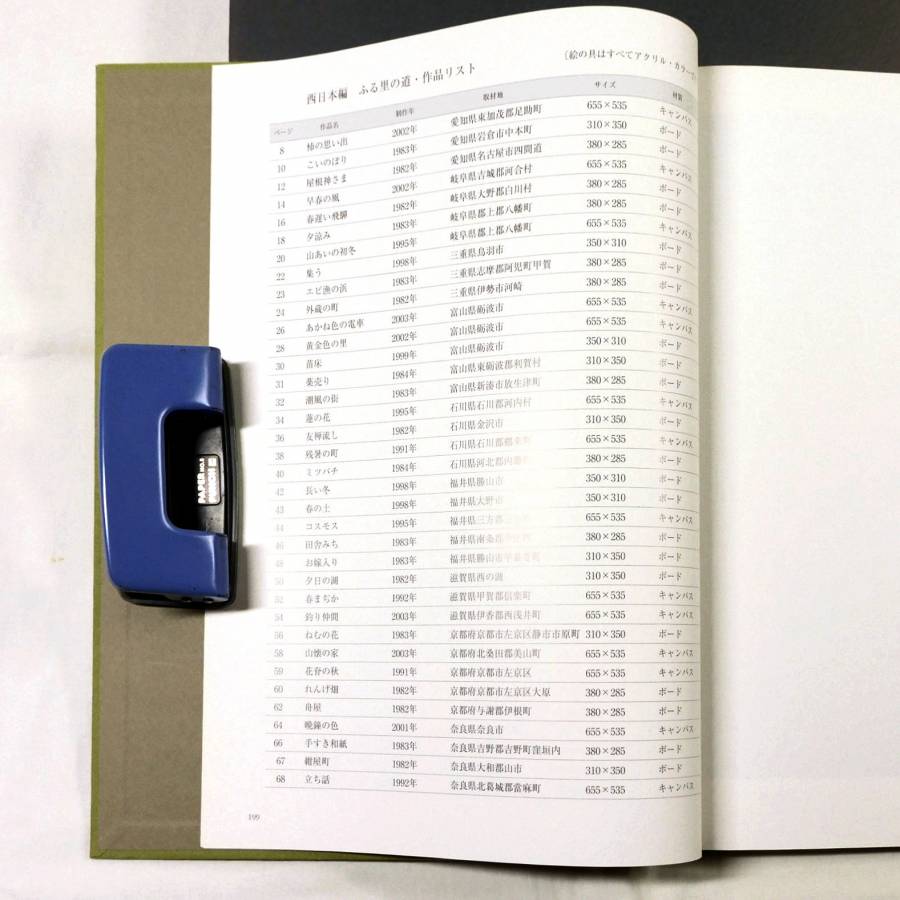 〔絵の具はすべてアクリル・カラーで
西日本編 ふる里の道・作品リスト
ページ 作品名 制作年 取材地 サイズ 材質
8 柿の思い出 2002年 愛知県東加茂郡足助町 655×535 キャンバス
10 こいのぼり 1983年 愛知県岩倉市中本町 310×350 ボード
12 屋根神さま 1982年 愛知県名古屋市四間道 380×285 ボード
14 早春の風 2002年 岐阜県古城郡河合村 655×535 キャンバス
16 春遅い飛騨 1982年 岐阜県大野郡白川村 380×285 ボード
18 夕涼み 1983年 岐阜県郡上郡八幡町 380×285 ボード
20 山あいの初冬 1995年 岐阜県郡上郡八幡町 655×535 キャンバス
22 集う 1998年 三重県鳥羽市 350×310 ボード
23 エビ漁の浜 1983年 三重県志摩郡阿児町甲賀 380×285 ボード
24 外蔵の町 1982年 三重県伊勢市河崎 380×285 ボード
26 あかね色の電車 2003年 富山県砺波市 655×535 キャンバス
28 黄金色の里 2002年 富山県砺波市 655×535 キャンバス
30 苗床 1999年 富山県砺波市 350×310 ボード
31 薬売り 1984年 富山県東砺波郡利賀村 310×350 ボード
32 潮風の街 1983年 富山県新湊市放生津町 380×285 ボード
34 蓮の花 1995年 石川県石川郡河内村 655×535 キャンバス
36 友禅流し 1982年 石川県金沢市 310×350 ボード
38 残暑の町 1991年 石川県石川郡 655×535 キャンバス
40 ミツバチ 1984年 石川県河北郡 380×285 ボード
42 長い冬 1998年 福井県勝山市 350×310 ボード
43 春の土 1998年 福井県大野市 350×310 ボード
44 コスモス 1995年 福井県三方郡 655×535 キャンバス
46 田舎みち 1983年 福井県南条郡 380×285 ボード
48 お嫁入り 1983年 福井県勝山市平泉寺町 310×350 ボード
50 夕日の湖 1982年 滋賀県西の湖 310×350 ボード
52 春まぢか 1992年 滋賀県甲賀郡信楽町 655×535 キャンバス
54 釣り仲間 2003年 滋賀県伊香郡西浅井町 655×535 キャンバス
56 ねむの花 1983年 京都府京都市左京区静市市原町 310×350 ボード
58 山懐の家 2003年 京都府北桑田郡美山町 655×535 キャンバス
59 花脊の秋 1991年 京都府京都市左京区 655×535 キャンバス
60 れんげ畑 1982年 京都府京都市左京区大原 380×285 ボード
62 舟屋 1982年 京都府与謝郡伊根町 380×285 ボード
64 晩鐘の色 2001年 奈良県奈良市 655×535 キャンバス
66 手すき和紙 1983年 奈良県吉野郡吉野町窪垣内 380×285 ボード
67 紺屋町 1982年 奈良県大和郡山市 310×350 ボード
68 立ち話 1992年 奈良県北葛城郡當麻町 655×535 キャンバス
199
PAPER
PUNCH